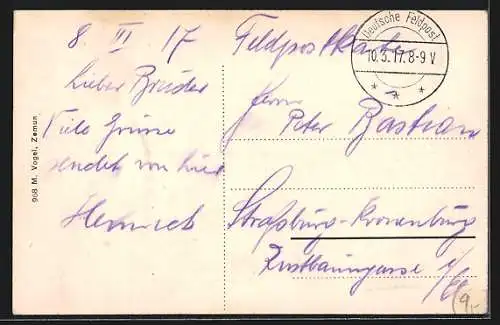 8 III 17 Feldpostkarte
Deutsche Feldpost
10.3.17.8-9 V
* * *
Lieber Bruder
Viele Grüsse
sendet von hier
Heinrich
Herrn
Peter Bastian
Straßburg-Kronenburg
908 M. Vogel, Zemun